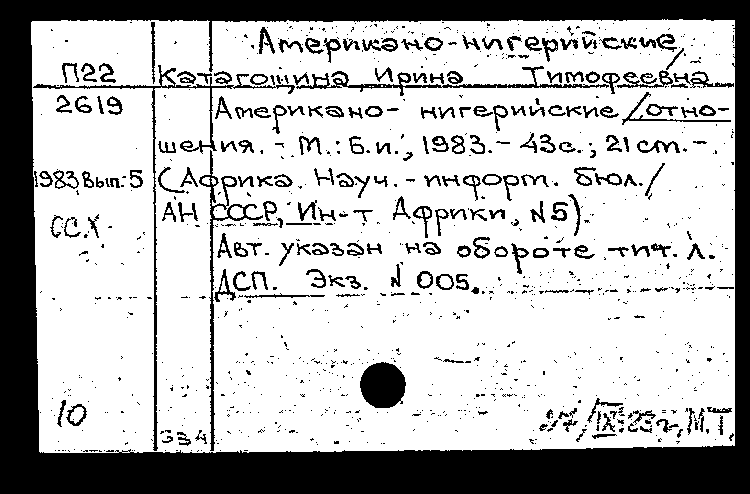 Американо-нигерийские/
П22 Катагощина, Ирина Тимофеевна
2619 Американо- нигерийские /отно-
шения. - М.: Б.и., 1983.- 43с.; 21 cm. -
1983 Вып. 5 (Африка. Науч. - информ. бюл./
АН СССР, Ин-т Африки, N5).
СС.Х
Авт. указан на обороте тит. л.
ДСП. Экз. N 005.
10
334
27/IX-83г, М.Т.